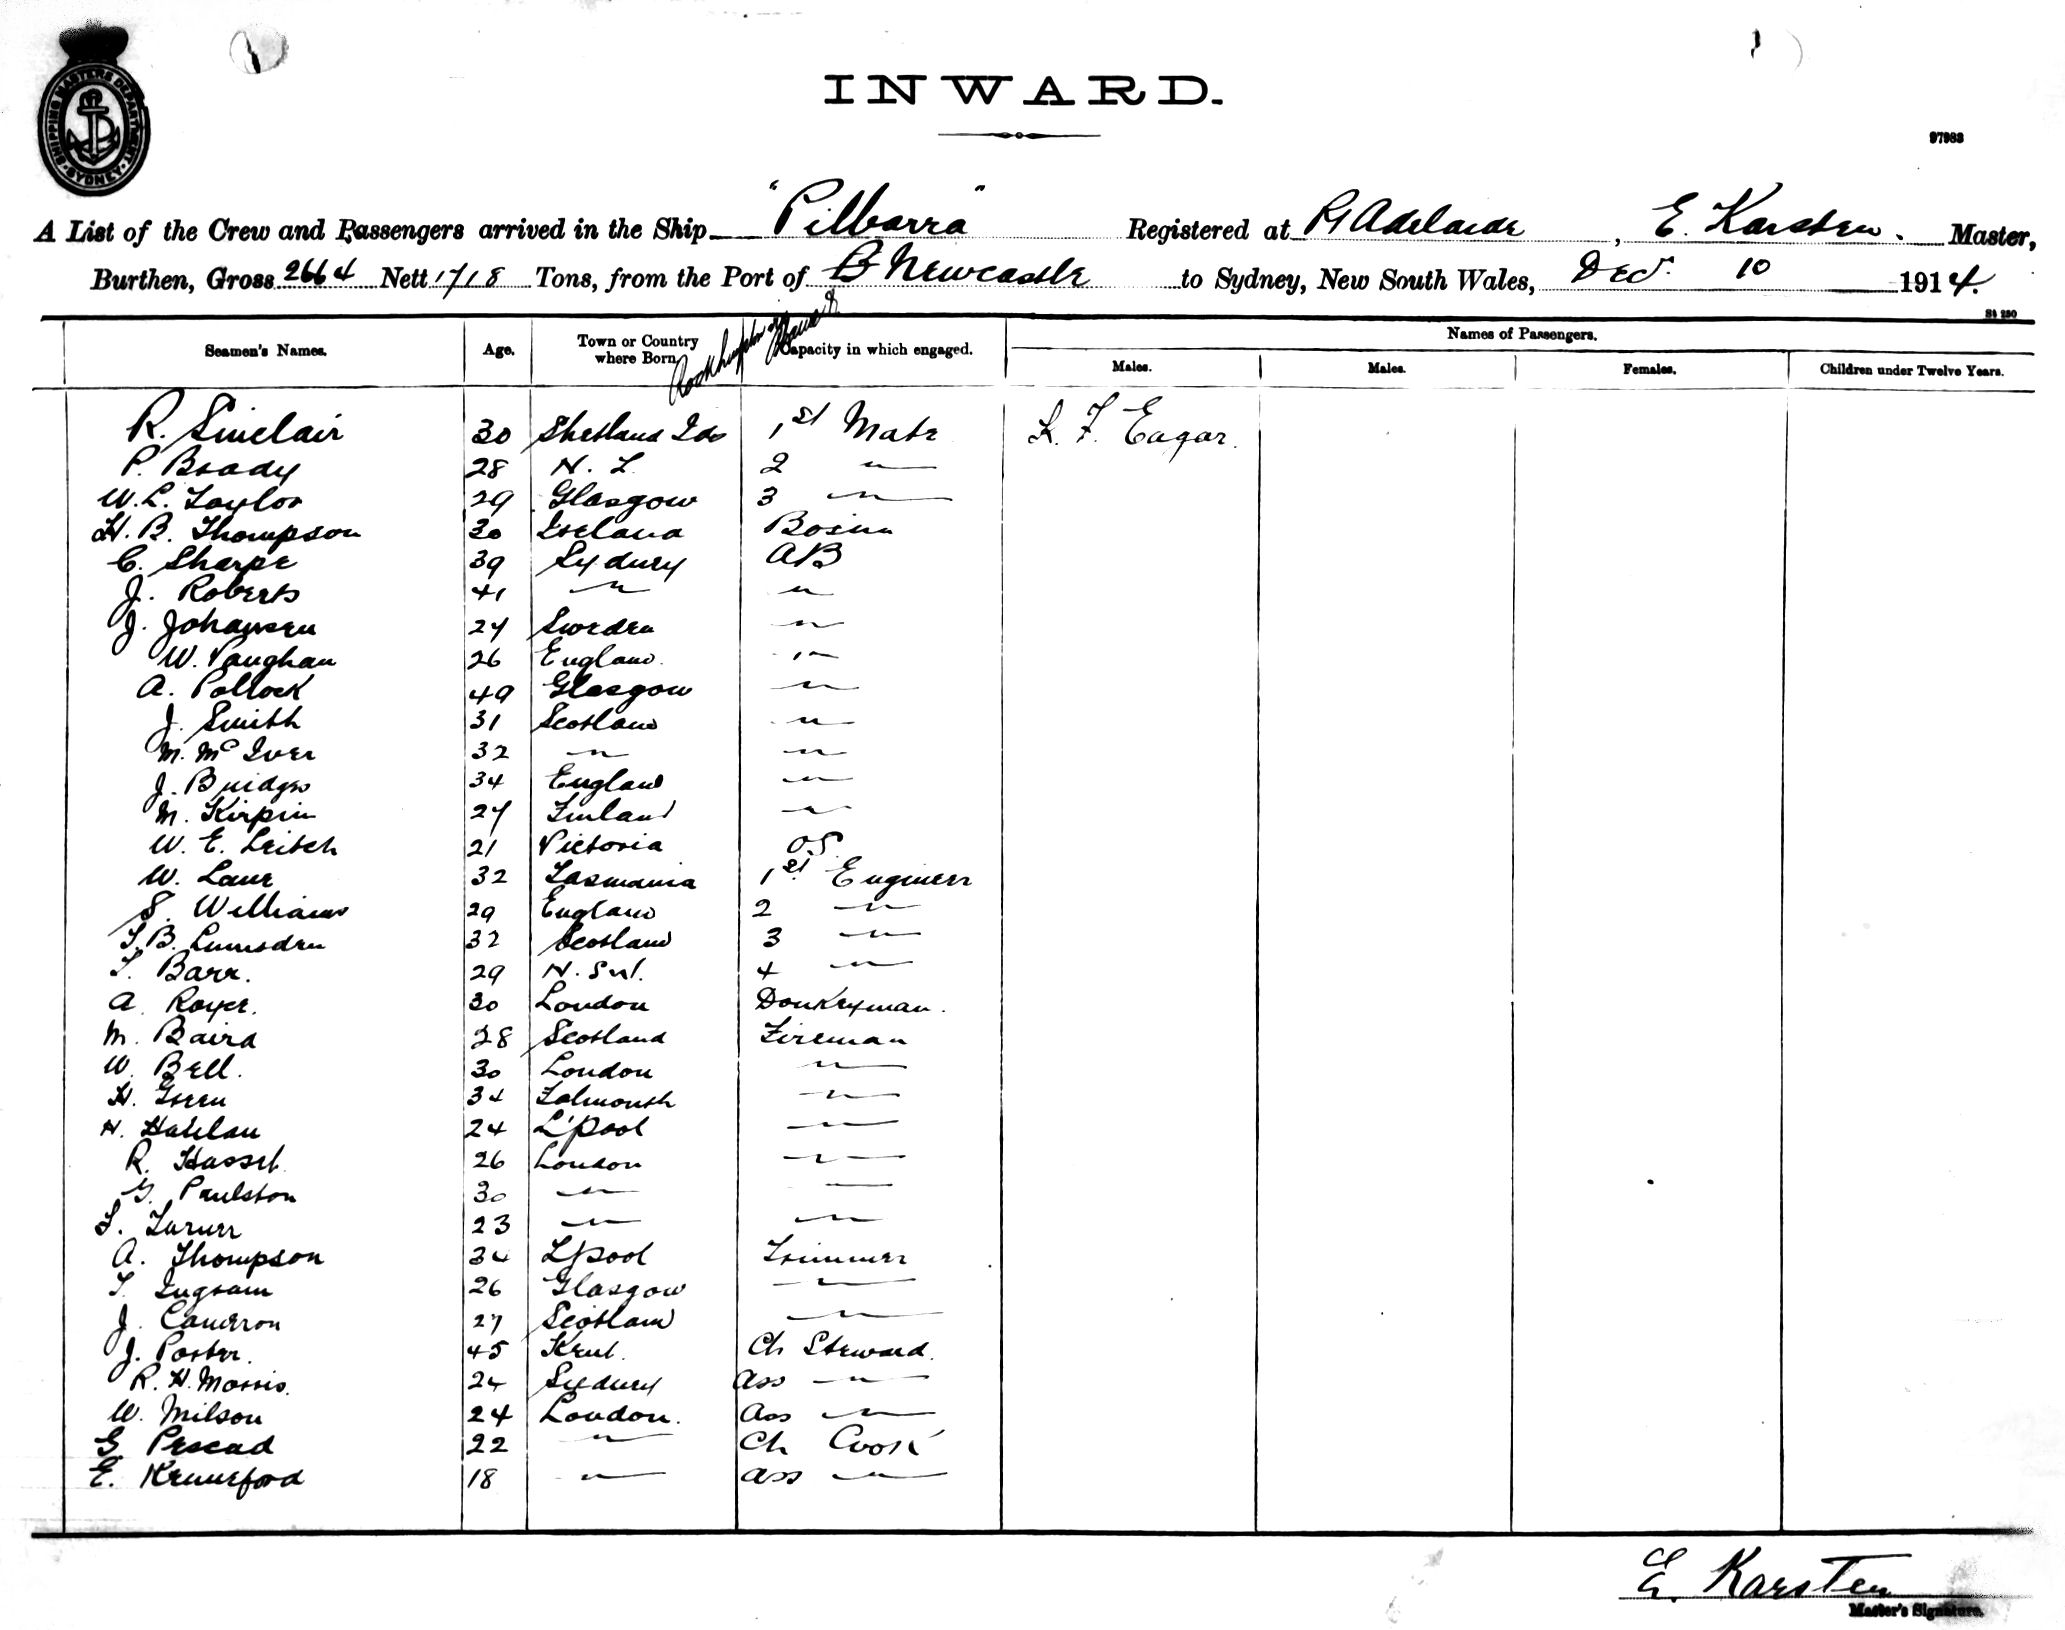 SHIPPING MASTERS DEPARTMENT SYDNEY
INWARD.
97983
A List of the Crew and Passengers arrived in the Ship "Pilbarra" Registered at Pt Adelaide, E. Karsten. Master,
Burthen, Gross 2664 Nett 1718 Tons, from the Port of Newcastle to Sydney, New South Wales, Dec. 10 1914.
St 250
Seamen's Names. Age. Town or Country where Born. Capacity in which engaged. Names of Passengers.
Males. Males. Females. Children under Twelve Years.
Rockhampton
R. Sinclair 30 Shetland Ids 1st Mate L. F. Eagar.
P. Brady 28 N. Z. 2 "
W. L. Taylor 29 Glasgow 3 "
H. B. Thompson 30 Ireland Bosun
C. Sharpe 39 Sydney AB
J. Roberts 41 " "
J. Johansen 24 Sweden "
W. Vaughan 26 England "
A. Pollock 49 Glasgow "
J. Smith 31 Scotland "
M. McIver 32 " "
J. Bridges 34 England "
M. Kirpin 27 Finland "
W. E. Leitch 21 Victoria OS
W. Lane 32 Tasmania 1st Engineer
S. Williams 29 England 2 "
T. B. Lumsden 32 Scotland 3 "
T. Barr. 29 N. S W. 4 "
A. Royer. 30 London Donkeyman.
M. Baird 28 Scotland Fireman
W. Bell. 30 London "
H. Green 34 Falmouth "
H. 24 L'pool "
R. Hasset 26 London "
G. Paulston 30 " "
T. Turner 23 " "
A. Thompson 34 L'pool Trimmer
T. Ingram 26 Glasgow "
J. Cameron 27 Scotland "
J. Porter. 45 Kent. Ch Steward.
R. H. Morris. 24 Sydney Ass "
W. Milson 24 London. Ass "
G. Persead 22 " Ch Cook
E. Kenneford 18 " Ass "
E. Karsten
Master's Signature.